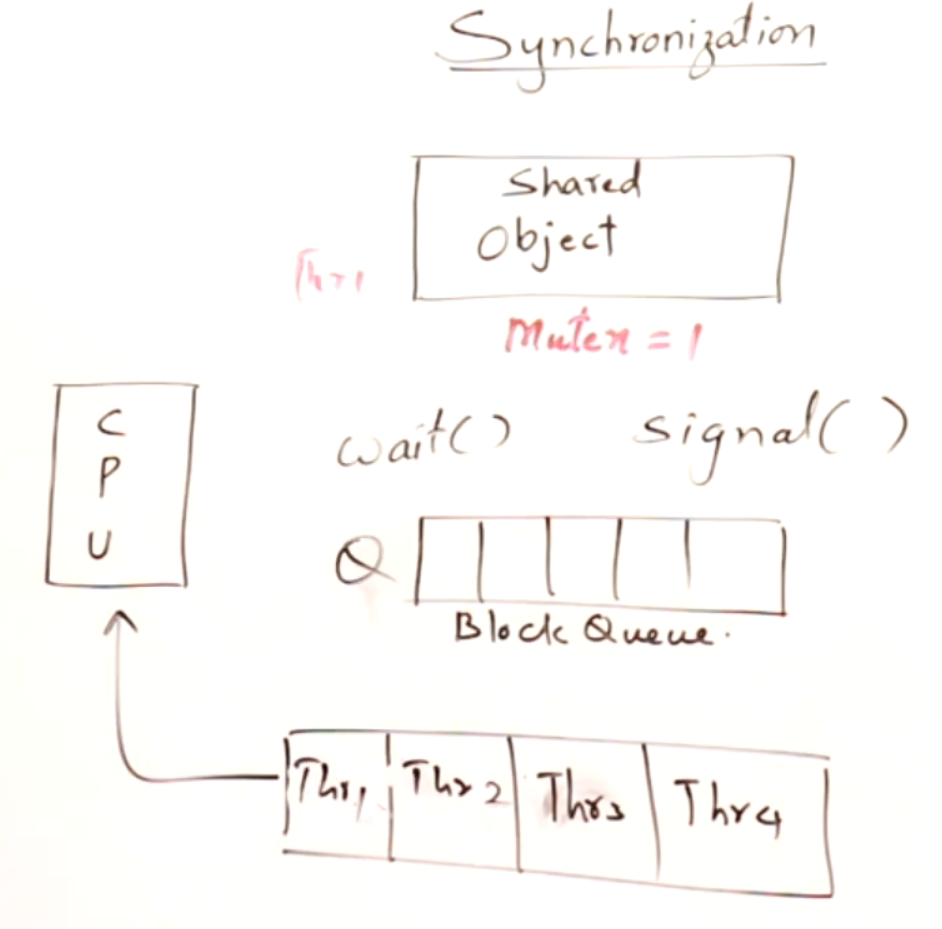 Synchronization
Shared
Object
Thr1
Mutex = 1
C
P
U
wait() signal()
Q
Block Queue.
Thr1 Thr2 Thr3 Thr4